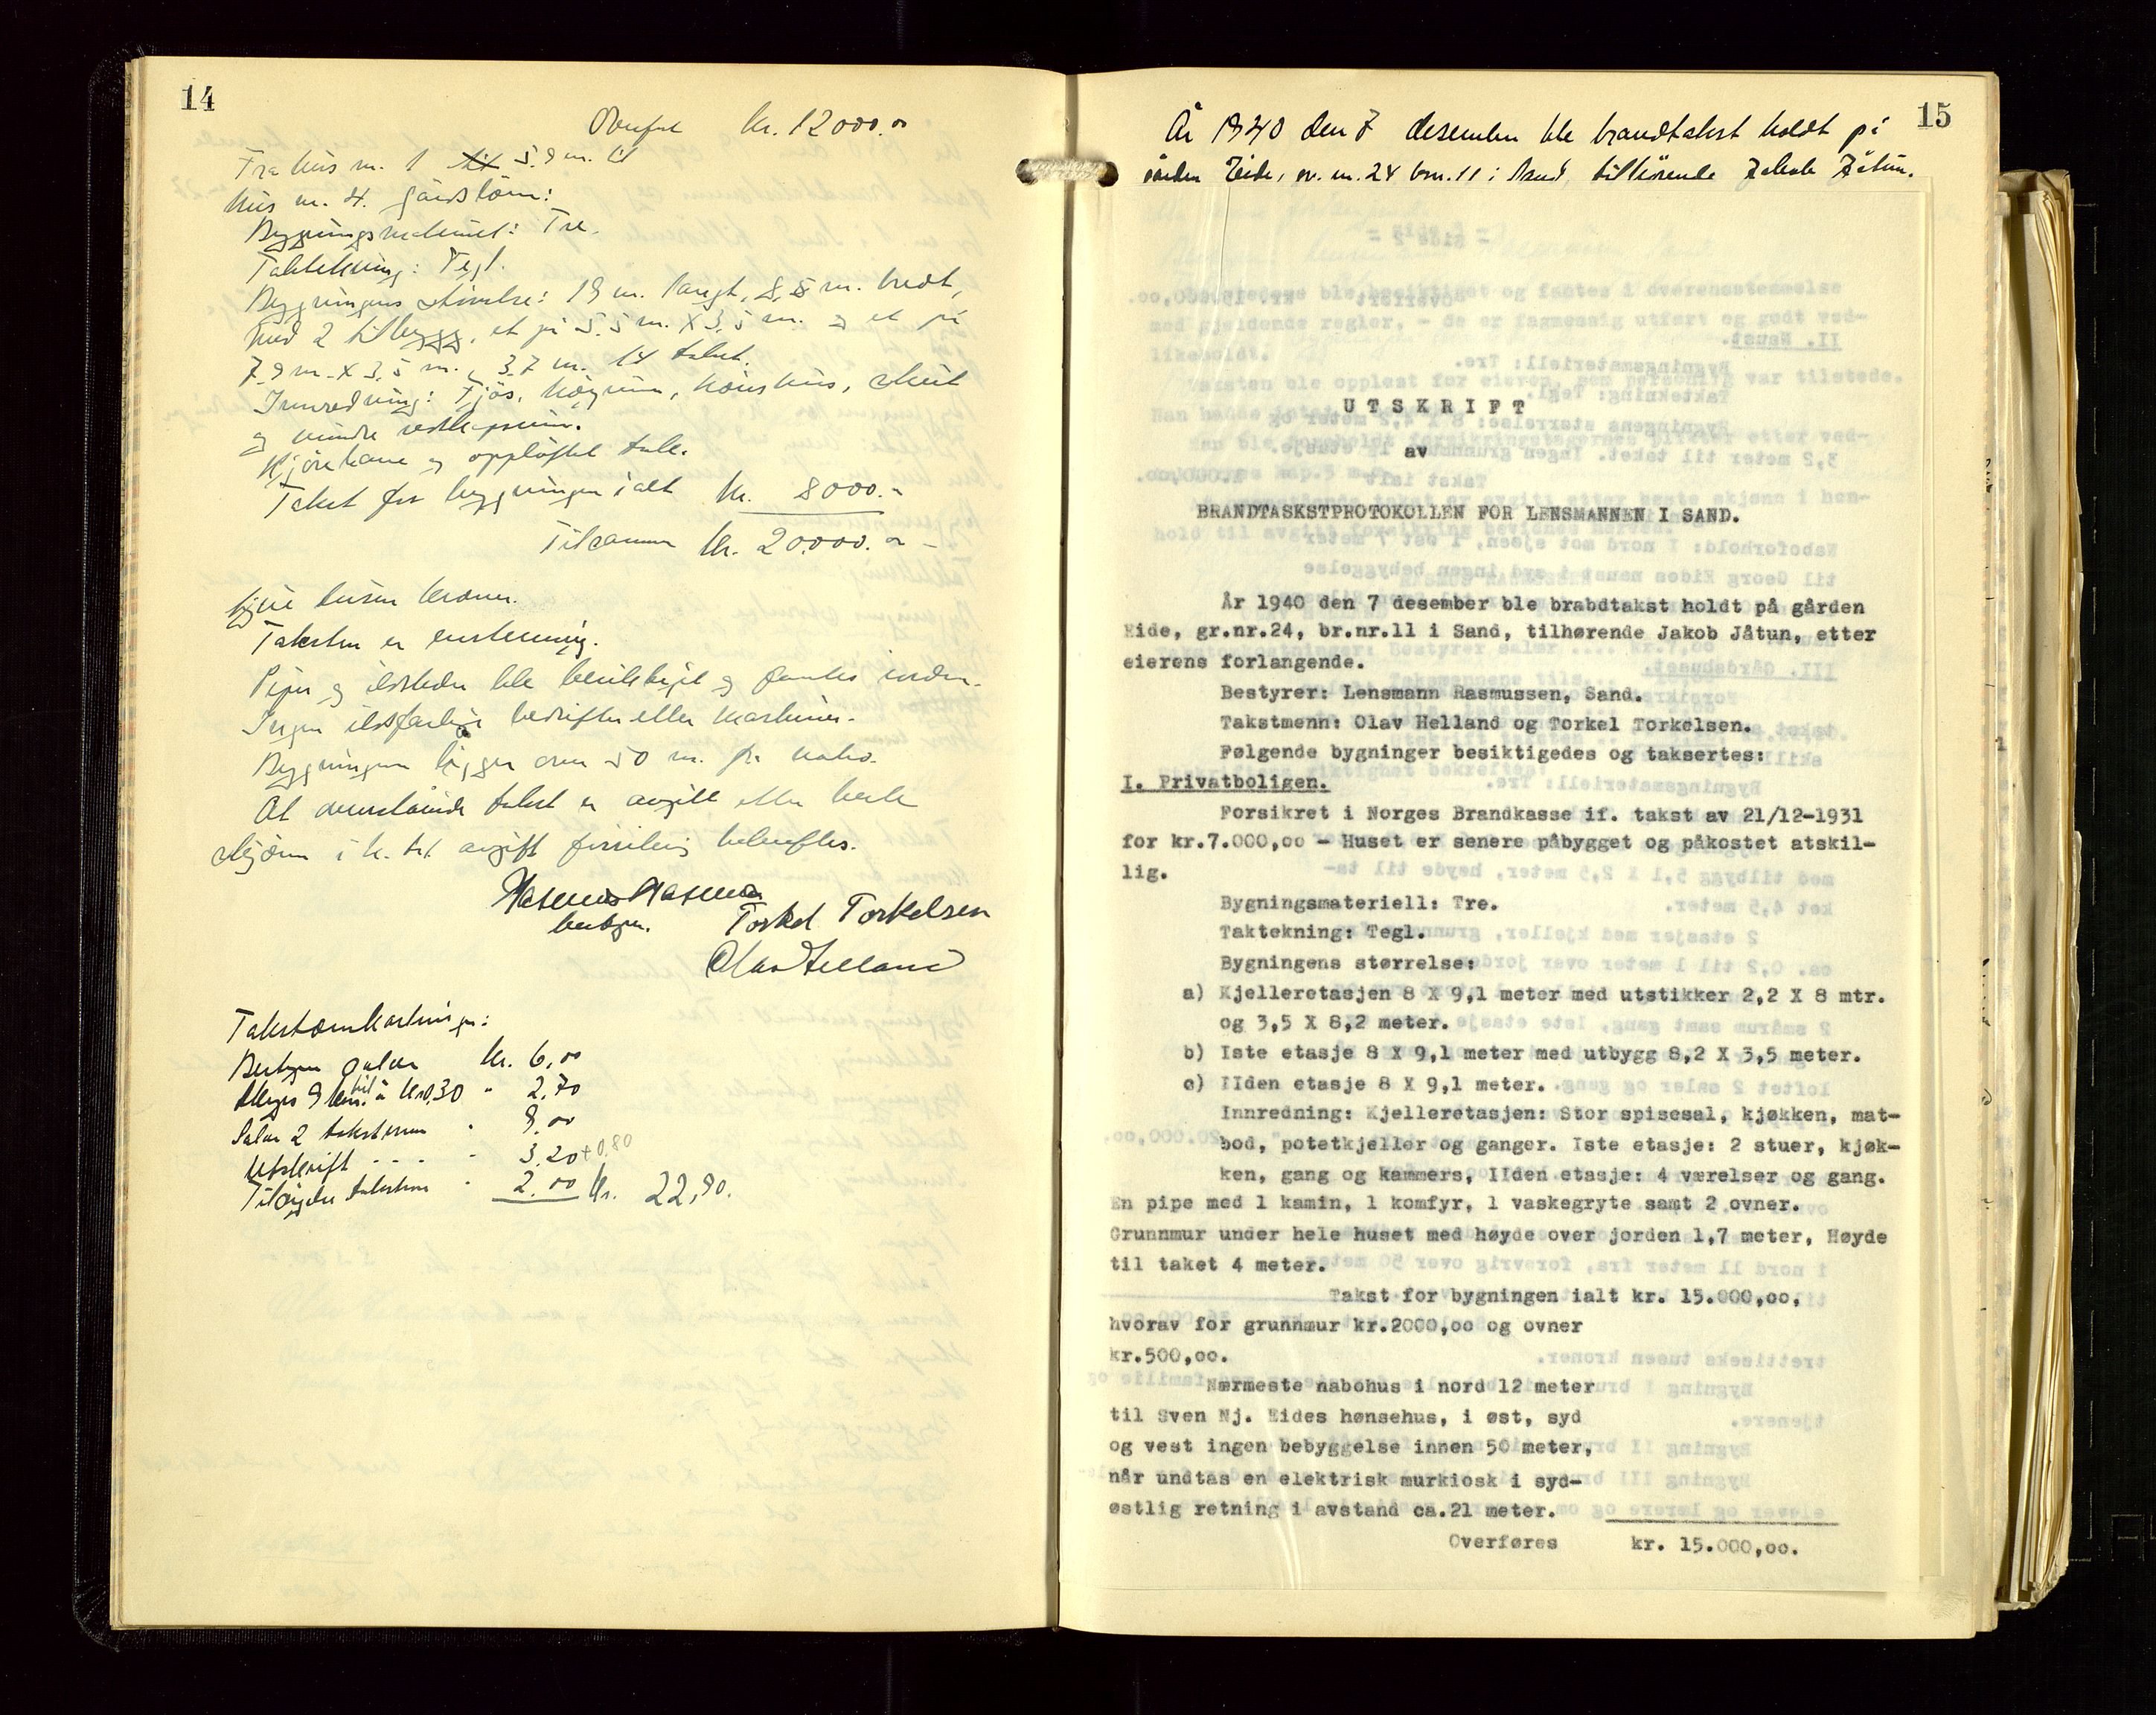 14
Overført kr. 12000.00
Fra hus nr. 1 5.9 m. til
hus nr. 4. Gårdsløen:
Bygningsmateriel: Tre.
Taktekning: Tegl.
Bygningens størrelse: 19 m. langt, 8,8 m. bredt,
med 2 tilbygg, et på 5.5 m. X 3.5 m. og et på
7.9 m. X 3.5 m. 3.7 m. til taket.
Innredning: Fjøs, høyrum, hønsehus, skut
og mindre redskapsrum.
Kjørebane og oppløftet tale.
Takst for bygningen ialt kr. 8000.-
Tilsammen kr. 20.000.00 -
tjue tusen kroner.
Taksten er enstemmig.
Piper og ildsteder ble besiktiget og fantes i orden.
Ingen ildsfarlige bedrifter eller maskiner.
Bygningene ligger over 50 m. fra nabo.
At ovenstående takst er avgitt etter beste
skjønn i h. t. avgift forsikring bekreftes.
Rasmus Rasmussen
bestyrer. Torkel Torkelsen
Olav Helland
Takstomkostninger:
Bestyrer salær kr. 6,00
Skyss 9 km. til à kr 0,30 " 2.70
Salær 2 takstmenn " 9.00
Utskrift - - - " 3.20 +0,80
Tilsigelse takstmenn " 2.00 kr. 22,90.
15
År 1940 den 7 desember ble brandtakst holdt på
gården Eide, gr. nr. 24 brn. 11 i Sand, tilhørende Jakob Jåtun.
UTSKRIFT
av
BRANDTASKSTPROTOKOLLEN FOR LENSMANNEN I SAND.
År 1940 den 7 desember ble brabdtakst holdt på gården
Eide, gr.nr.24, br.nr.11 i Sand, tilhørende Jakob Jåtun, etter
eierens forlangende.
Bestyrer: Lensmann Rasmussen, Sand.
Takstmenn: Olav Helland og Torkel Torkelsen.
Følgende bygninger besiktigedes og taksertes:
I. Privatboligen.
Forsikret i Norges Brandkasse if. takst av 21/12-1931
for kr.7.000,oo - Huset er senere påbygget og påkostet atskil-
lig.
Bygningsmateriell: Tre.
Taktekning: Tegl.
Bygningens størrelse:
a) Kjelleretasjen 8 X 9,1 meter med utstikker 2,2 X 8 mtr.
og 3,5 X 8,2 meter.
b) Iste etasje 8 X 9,1 meter med utbygg 8,2 X 3,5 meter.
c) IIden etasje 8 X 9,1 meter.
Innredning: Kjelleretasjen: Stor spisesal, kjøkken, mat-
bod, potetkjeller og ganger. Iste etasje: 2 stuer, kjøk-
ken, gang og kammers, IIden etasje: 4 værelser og gang.
En pipe med 1 kamin, 1 komfyr, 1 vaskegryte samt 2 ovner.
Grunnmur under hele huset med høyde over jorden 1,7 meter, Høyde
til taket 4 meter.
Takst for bygningen ialt kr. 15.000,oo,
hvorav for grunnmur kr.2000,oo og ovner
kr.500,oo.
Nærmeste nabohus i nord 12 meter
til Sven Nj. Eides hønsehus, i øst, syd
og vest ingen bebyggelse innen 50 meter,
når undtas en elektrisk murkiosk i syd-
østlig retning i avstand ca.21 meter.
Overføres kr. 15.000,oo.